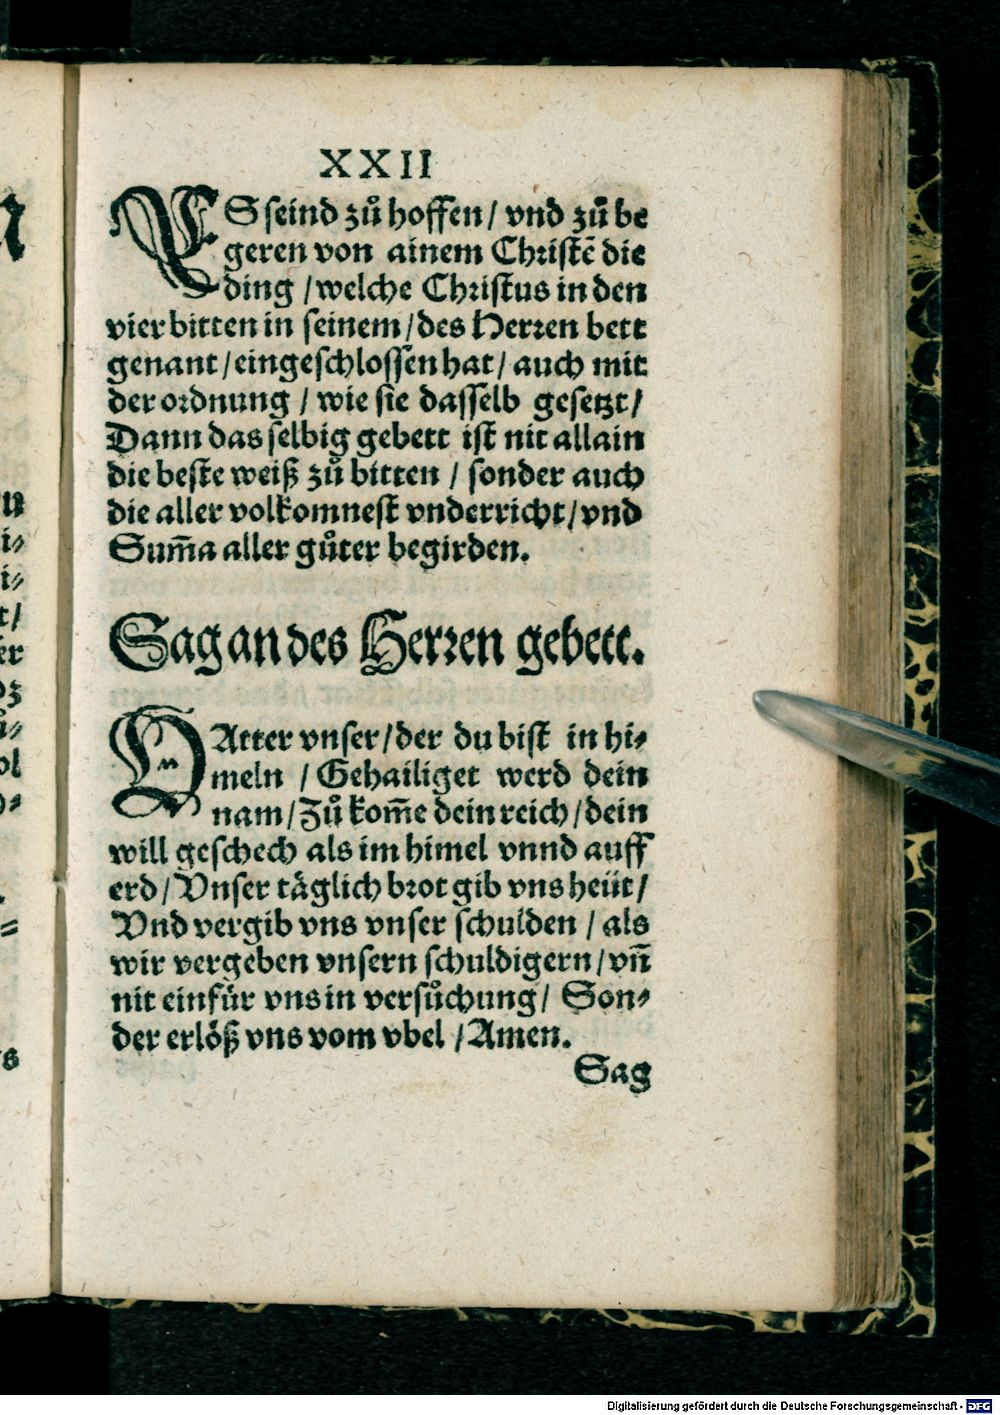 XXII
ES seind zů hoffen / vnd zů be
geren von ainem Christē die
ding / welche Christus in den
vier bitten in seinem / des Herren bett
genant / eingeschlossen hat / auch mit
der ordnung / wie sie dasselb gesetzt /
Dann das selbig gebett ist nit allain
die beste weiß zů bitten / sonder auch
die aller volkomnest vnderricht / vnd
Sum̄a aller gůter begirden.
Sag an des Herren gebett.
VAtter vnser / der du bist in hi⸗
meln / Gehailiget werd dein
nam / Zů kom̄e dein reich / dein
will geschech als im himel vnnd auff
erd / Vnser täglich brot gib vns heüt /
Vnd vergib vns vnser schulden / als
wir vergeben vnsern schuldigern / vn̄
nit einfür vns in versůchung / Son⸗
der erlöß vns vom vbel / Amen.
Sag
Digitalisierung gefördert durch die Deutsche Forschungsgemeinschaft - DFG